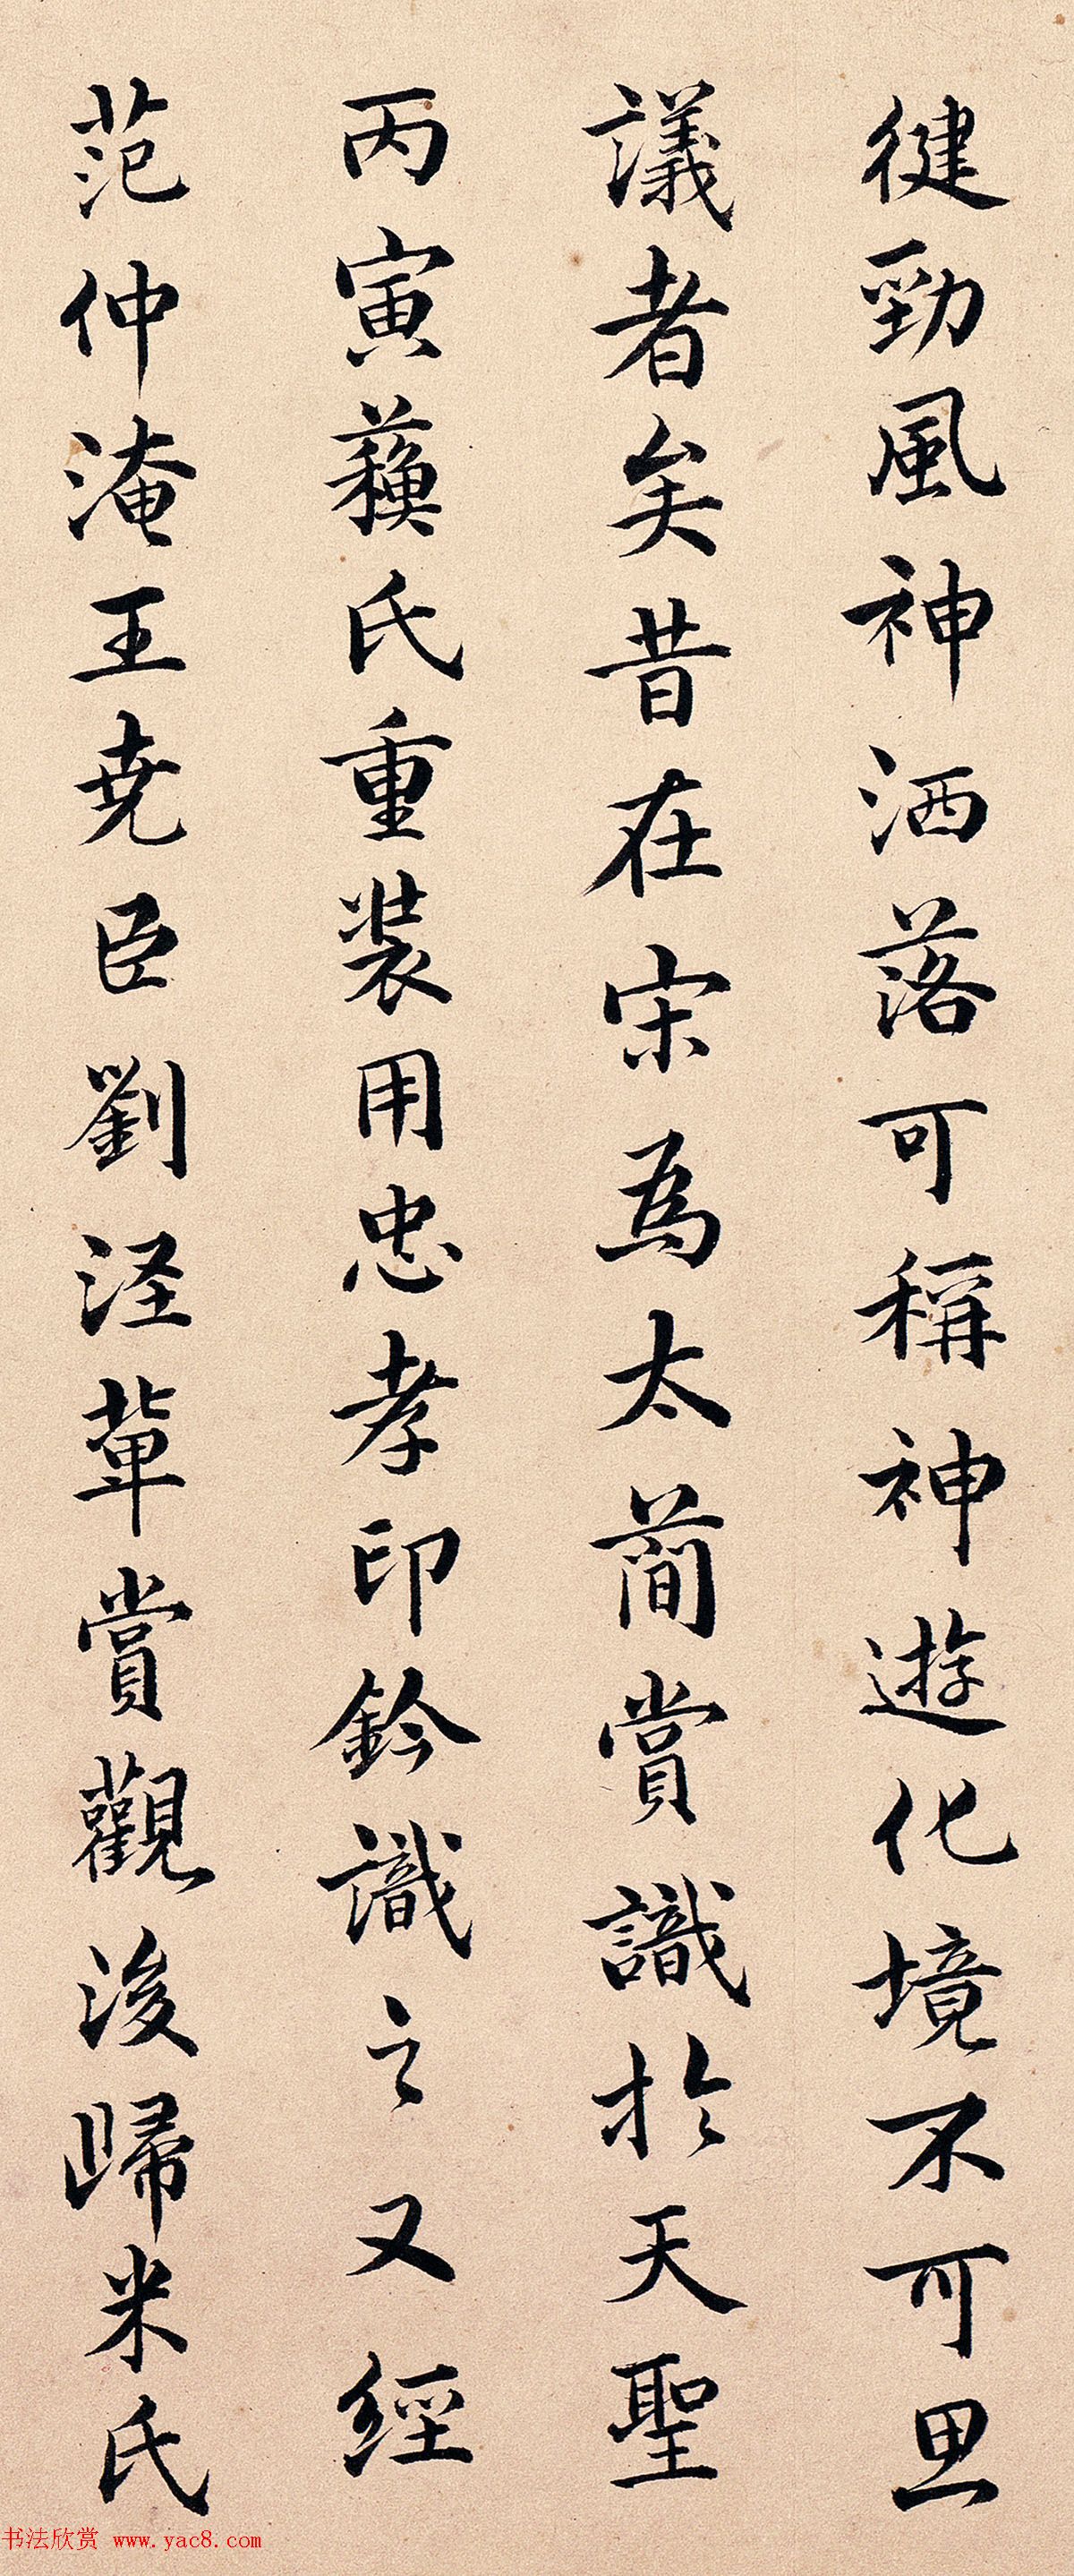 健勁風神洒落可稱神遊化境不可思
議者矣昔在宋為太簡賞識於天聖
丙寅蘇氏重裝用忠孝印鈐識之又經
范仲淹王尭臣劉泾輩賞觀後歸米氏
书法欣赏 www.yac8.com